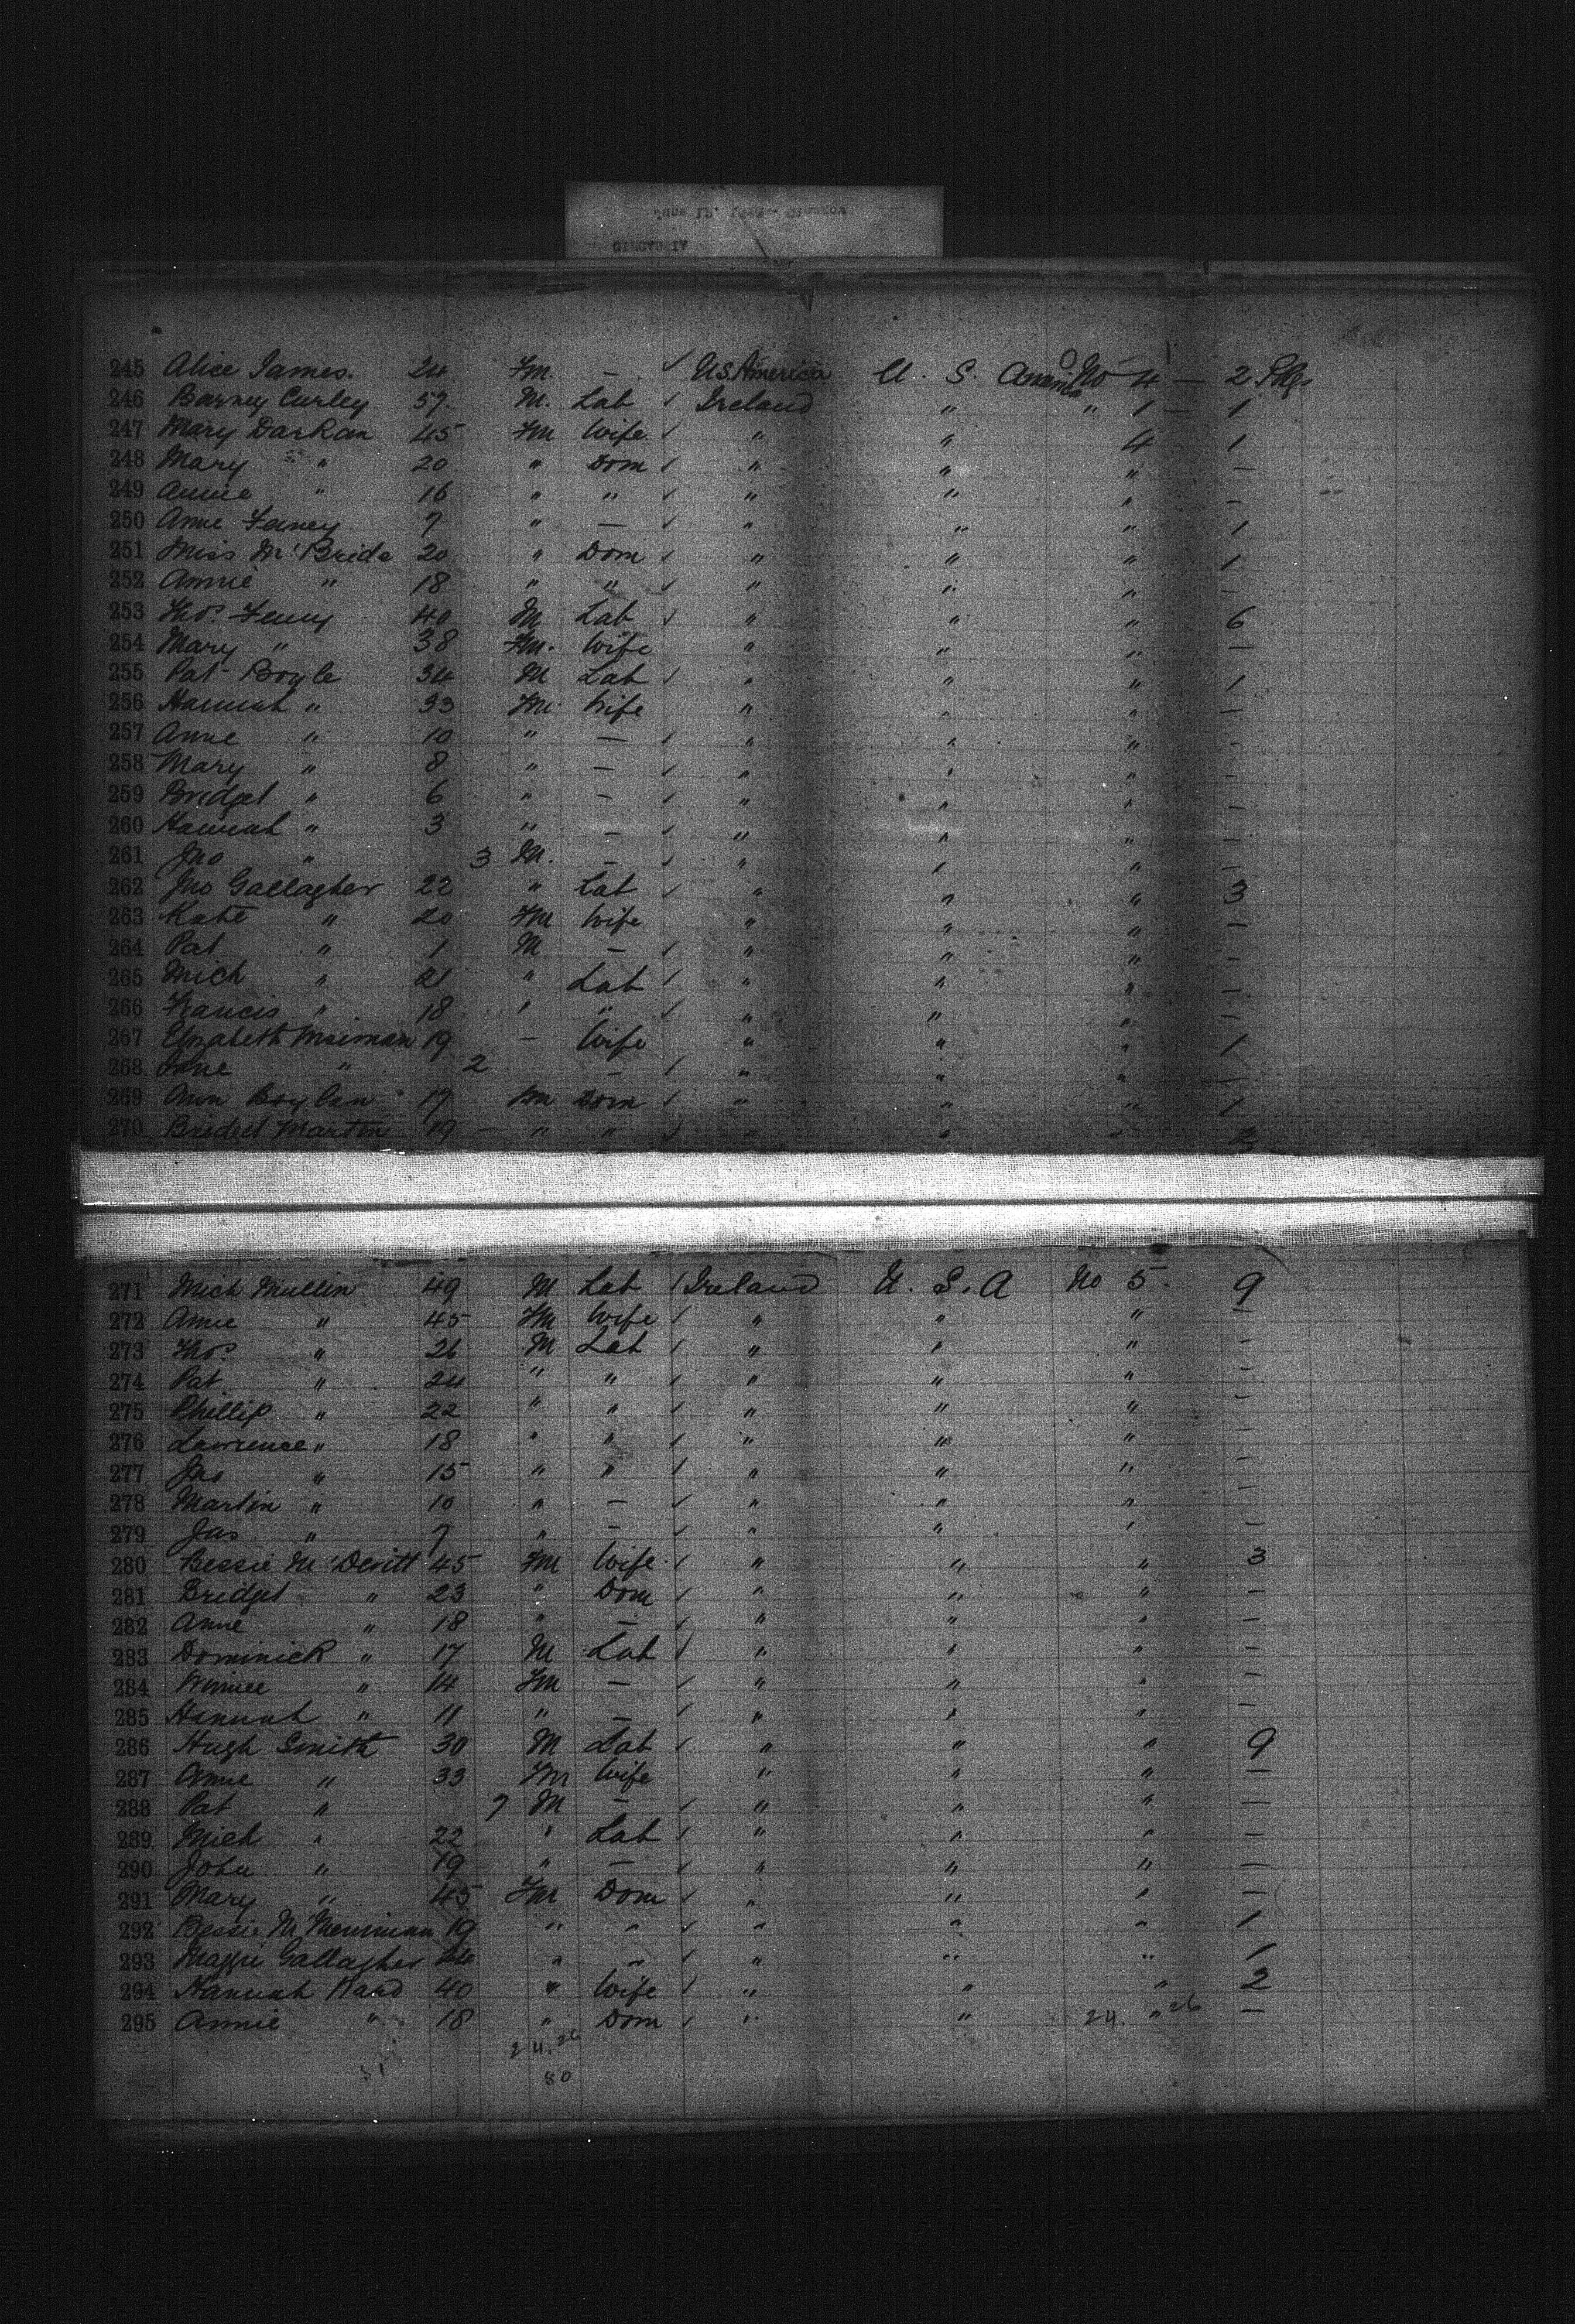 245 Alice James. 24 Fm. — ✓ U.S. America U. S. America No 4 — 2 Pkgs
246 Barney Curley 57. M. Lab ✓ Ireland " " 1 — 1
247 Mary Darkan 45 Fm Wife ✓ " " 4 1
248 Mary " 20 " Dom ✓ " " " —
249 Annie " 16 " " ✓ " " " —
250 Anne Feney 7 " — ✓ " " " 1
251 Miss McBride 20 " Dom ✓ " " " 1
252 Annie " 18 " " ✓ " " " —
253 Thos. Feuny 40 M Lab ✓ " " " 6
254 Mary " 38 Fm. Wife " " " —
255 Pat Boyle 34 M Lab ✓ " " " 1
256 Hannah " 33 Fm Wife " " " —
257 Anne " 10 " — ✓ " " " —
258 Mary " 8 " — ✓ " " " —
259 Bridget " 6 " — ✓ " " " —
260 Hannah " 3 " — ✓ " " " —
261 Jno " 3 M. — ✓ " " " —
262 Jno Gallagher 22 " Lab ✓ " " " 3
263 Kate " 20 Fm Wife " " " —
264 Pat " 1 M — ✓ " " " —
265 Mich " 21 " Lab ✓ " " " —
266 Francis " 18 " " ✓ " " " —
267 Elizabeth 19 — Wife " " " 1
268 Jane " 2 — ✓ " " " —
269 Ann Boylan 17 Fm Dom ✓ " " " 1
270 Bridget Martin 19 — " " ✓ " " " 2
271 Mich Mullin 49 M Lab ✓ Ireland U. S. A No 5. 9
272 Anne " 45 Fm Wife ✓ " " " —
273 Thos. " 26 M Lab ✓ " " " —
274 Pat " 24 " " ✓ " " " —
275 Phillip " 22 " " ✓ " " " —
276 Lawrence " 18 " " ✓ " " " —
277 Jno " 15 " " ✓ " " " —
278 Martin " 10 " — ✓ " " " —
279 Jas " 7 " — ✓ " " " —
280 Bessie McDevitt 45 Fm Wife ✓ " " " 3
281 Bridget " 23 " Dom ✓ " " " —
282 Anne " 18 " — ✓ " " " —
283 Dominick " 17 M Lab ✓ " " " —
284 Winnie " 14 Fm — ✓ " " " —
285 Hannah " 11 " — ✓ " " " —
286 Hugh Smith 30 M Lab ✓ " " " 9
287 Anne " 33 Fm Wife " " " —
288 Pat " 7 M — ✓ " " " —
289 Mich " 22 " Lab ✓ " " " —
290 John " 19 " — ✓ " " " —
291 Mary " 45 Fm Dom ✓ " " " —
292 Bessie 19 " " ✓ " " " 1
293 Maggie Gallagher 24 " " ✓ " " " 1
294 Hannah Ward 40 " Wife ✓ " " " 2
295 Annie " 18 " Dom ✓ " " 24. " 26 —
24.26
51 50